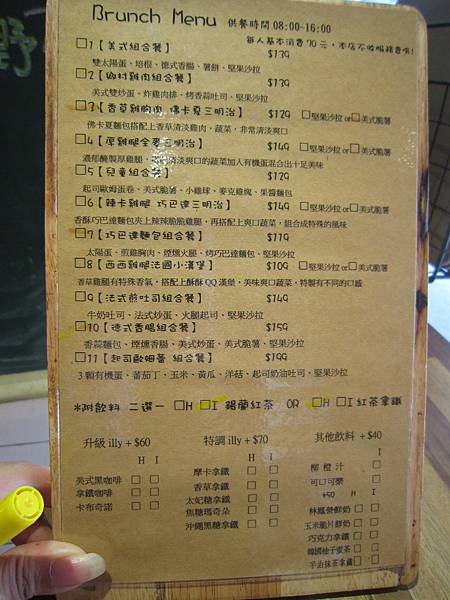 野
Brunch Menu 供餐時間 08:00~16:00
每人基本消費70元，本店不收服務費唷!
□1【美式組合餐】 $139
雙太陽蛋、培根、德式香腸、薯餅、堅果沙拉
□2【鄉村雞肉組合餐】 $139
美式雙炒蛋、炸雞肉排、烤香蒜吐司、堅果沙拉
□3【香草雞胸肉 佛卡夏三明治】 $129 □堅果沙拉or□美式脆薯
佛卡夏麵包搭配上香草清淡雞肉，蔬菜，非常清淡爽口
□4【厚雞腿全麥三明治】 $149 □堅果沙拉or□美式脆薯
濃郁醃製厚雞腿、清淡爽口的蔬菜加入有機蛋混合出十足美味
□5【兒童組合餐】 $129
起司歐姆蛋卷、美式脆薯、小雞球、麥克雞塊、果醬麵包
□6【辣卡雞腿 巧巴達三明治】 $149 □堅果沙拉or□美式脆薯
香酥巧巴達麵包夾上辣辣脆脆雞腿，再搭配上爽口蔬菜，組合成特殊的風味
□7【巧巴達麵包組合餐】 $119
太陽蛋、煎雞胸肉、煙燻火腿、烤巧巴達麵包、堅果沙拉
□8【西西雞腿法國小漢堡】 $109 □堅果沙拉or□美式脆薯
香草雞腿有特殊香氣，搭配上酥酥QQ漢堡，美味爽口蔬菜，特製有不同的口感
□9【法式煎吐司組合餐】 $149
牛奶吐司、法式炒蛋、火腿起司、堅果沙拉
□10【德式香腸組合餐】 $159
香蒜麵包、煙燻香腸、美式炒蛋、美式脆薯、堅果沙拉
□11【起司歐姆蕾 組合餐】 $199
3顆有機蛋、蕃茄丁、玉米、黃瓜、洋菇、起司奶油吐司、堅果沙拉
*附飲料 二選一 □H □I 錫蘭紅茶 OR □H □I 紅茶拿鐵
升級 illy + $60
H I
美式黑咖啡 □ □
拿鐵咖啡 □ □
卡布奇諾 □ □
特調 illy + $70
H I
摩卡拿鐵 □ □
香草拿鐵 □ □
太妃糖拿鐵 □ □
焦糖瑪奇朵 □ □
沖繩黑糖拿鐵 □ □
其他飲料 + $40
I
柳橙汁 □
可口可樂 □
+50 H I
林鳳營鮮奶 □ □
玉米脆片鮮奶 □ □
巧克力拿鐵 □ □
韓國柚子蜜茶 □ □
宇治抹茶拿鐵 □ □